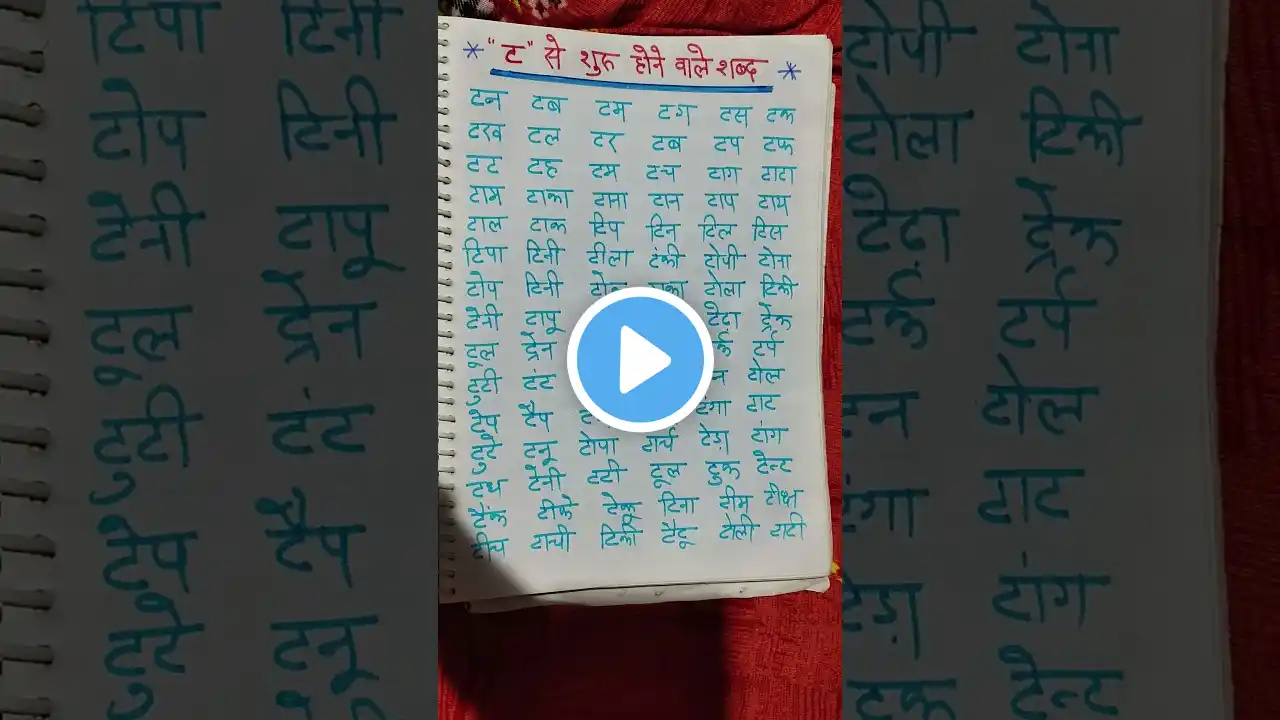 * "ट" से शुरू होने वाले शब्द *
टन टब टम टग टस टक
टरव टल टर टब टप टफ
टट टह टम टच टाग टाटा
टाम टाका टाना टान टाप टाय
टाल टाक टिप टिन टिल टिस
टिपा टिनी टीला टंकी टोपी टोना
टोप टिनी टोला
टेनी टापू टेढ़ा ट्रेक
टूल ट्रेन टर्प
टुटी टंट टोल
टेप टैप टंगा टाट
टुटे टनू टोपा टार्च टेग टांग
टथ टेनी टटी टूल टुक टेन्ट
टैंक टीके टेक टिना टीम टीक्ष
टीच टाची टिकी टैटू टोली टाटी